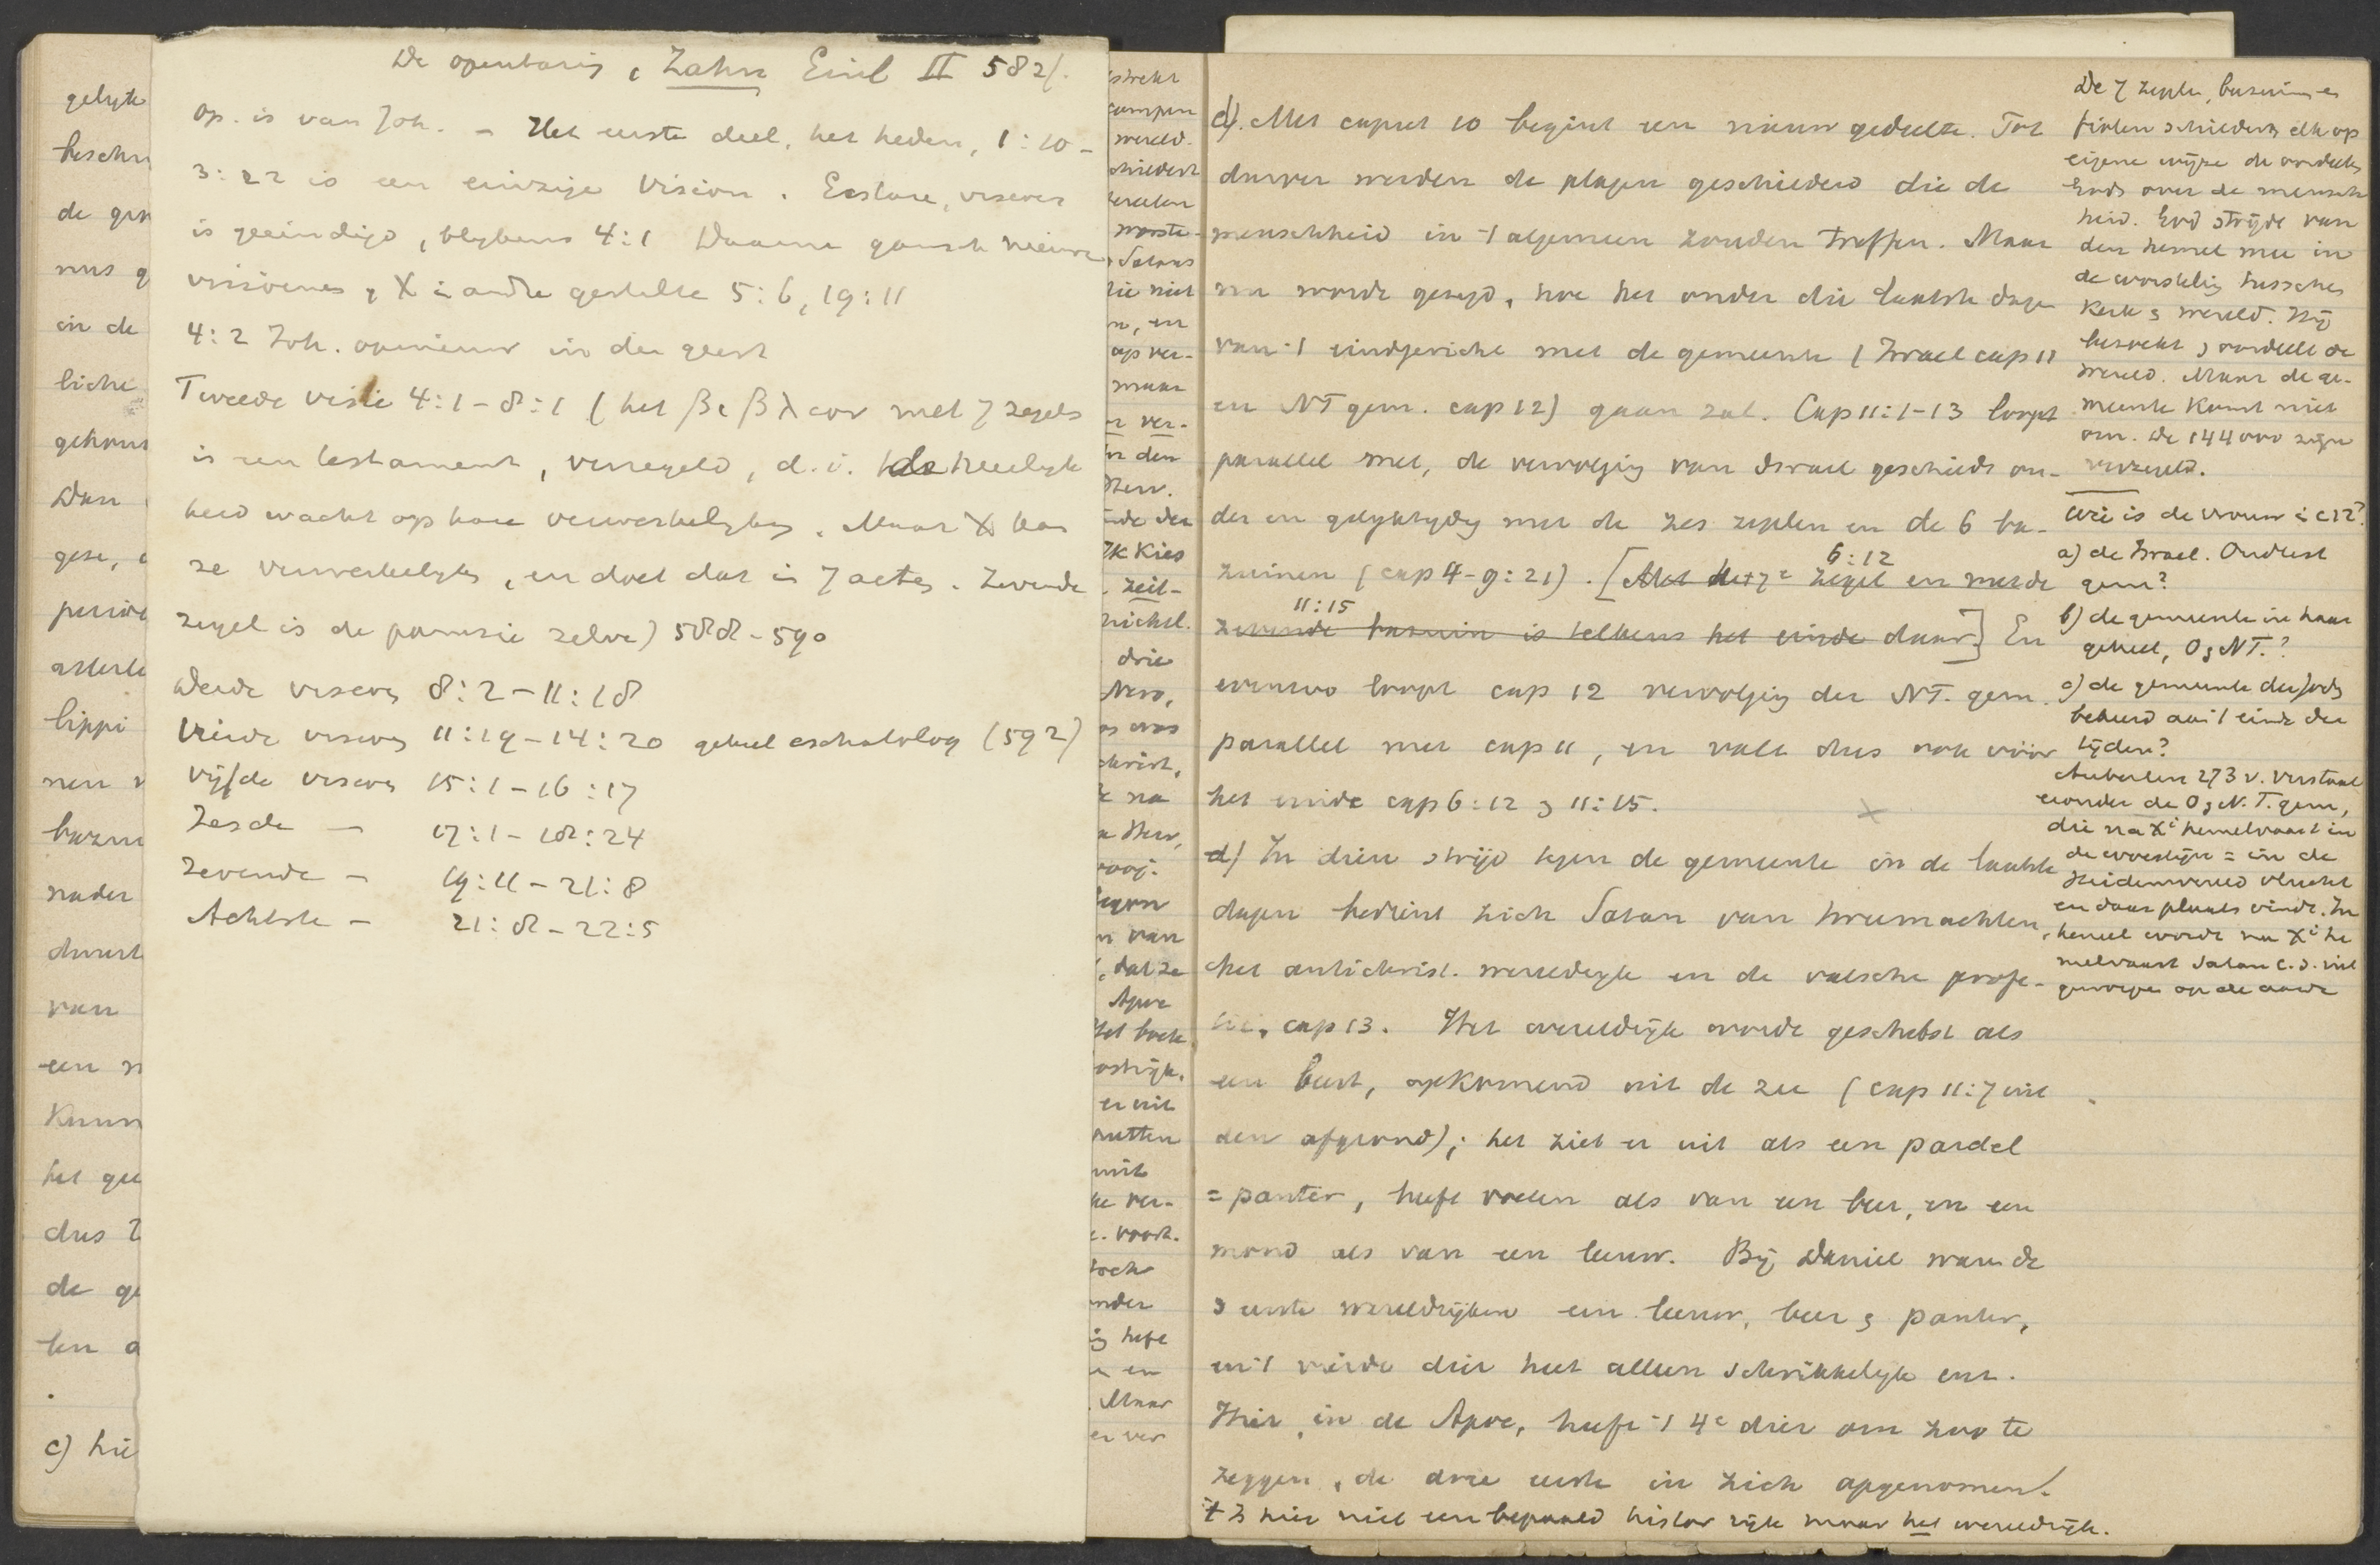 De openbaring, Zahn Einl II 582f.
Op. is van Joh. – Het eerste deel, het heden, 1:10 –
3:22 is een einzige Vision. Ecstase, visioen
is geëindigd, blijkens 4:1 Daarna gansch nieuwe
visioenen, X in andre gestalte 5:6, 19:11
4:2 Joh. opnieuw in den geest
Tweede visie 4:1–8:1 (het βιβλιον met 7 zegels
is een testament, verzegeld, d.i. de heerlijk
heid wacht op hare verwerkelijking. Maar X kan
ze verwerkelijken, en doet dat in 7 acten. Zevende
zegel is de parousie zelve) 588–590
Derde visioen 8:2–11:18
Vierde visioen 11:19–14:20 geheel eschatolog (592)
Vijfde visioen 15:1–16:17
Zesde — 17:1–18:24
Zevende — 19:11–21:8
Achtste — 21:8–22:5
gelijk
beschr
de
in de
liche
gehous
Dan
gese,
lippi
nen
nader
van
een
het
dus
de
ten
c) hie
wereld.
Satans
die niet
n, en
op ver-
maar
ver-
den
Herv.
Ik kies
zeit-
drie
Nero,
was
christ,
na
van
, dat ze
Apoc
Het boek
er uit
putten
uit
ver-
toch
onder
heft
en
Maar
er ver
c). Met caput 10 begint een nieuw gedeelte. Tot
dusver werden de plagen geschilderd die de
menschheid in 't algemeen zouden treffen. Maar
nu wordt gezegd, hoe het onder die laatste dagen
van 't eindgericht met de gemeente (Israel cap 11
en NT gem. cap 12) gaan zal. Cap 11:1–13 loopt
parallel met, de vervolging van Israel geschiedt on-
der en gelijktijdig met de zes zegelen en de 6 ba-
zuinen (cap 4–9:21). [Met het 7e zegel 6:12 en met de
zevende bazuin 11:15 is telkens het einde daar] En
evenzoo loopt cap 12 vervolging der NT. gem.
parallel met cap 11, en valt dus ook vóór
het einde cap 6:12 en 11:15.
d) In dien strijd tegen de gemeente in de laatste
dagen bedient zich Satan van twee machten,
het antichrist. wereldrijk en de valsche profe-
tie, cap 13. Het wereldrijk wordt geschetst als
een beest, opkomend uit de zee (cap 11:7 uit
den afgrond); het ziet er uit als een pardel
= panter, heeft voeten als van een beer, en een
mond als van een leeuw. Bij Daniel waren de
3 eerste wereldrijken een leeuw, beer en panter,
en 't vierde dier heet alleen schrikkelijk enz.
Hier, in de Apoc, heeft 't 4e dier om zoo te
zeggen, de drie eerste in zich opgenomen.
't Is hier niet een bepaald histor rijk maar het wereldrijk.
De 7 zegelen, bazuinen en
fiolen schilderen elk op
eigene wijze de oordeelen
Gods over de mensch
heid. God strijdt van
den hemel mee in
de worsteling tusschen
Kerk en wereld. Hij
bezoekt en oordeelt de
wereld. Maar de ge-
meente komt niet
om. De 144000 zijn
verzegeld.
Wie is de vrouw in c 12?
a) de Israel. Oudtest
gem?
b) de gemeente in haar
geheel, O en NT.?
c) de gemeente der Jods
bekeerd aan 't einde der
tijden?
Auberlen 273 v. verstaat
eronder de O en N.T. gem,
die na Xi hemelvaart in
de woestijn = in de
Heidenwereld vlucht
en daar plaats vindt. In
hemel wordt na Xi he
melvaart Satan c.s. uit
geworpen op de aarde